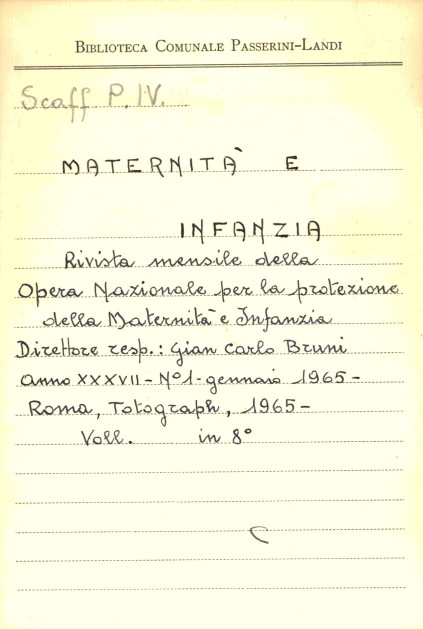 BIBLIOTECA COMUNALE PASSERINI-LANDI
Scaff P. IV.
MATERNITÀ E
INFANZIA
Rivista mensile della
Opera Nazionale per la protezione
della Maternità e Infanzia
Direttore resp.: Gian Carlo Bruni
Anno XXXVII - N° 1 - gennaio 1965 -
Roma, Totograph, 1965 -
Voll. in 8°